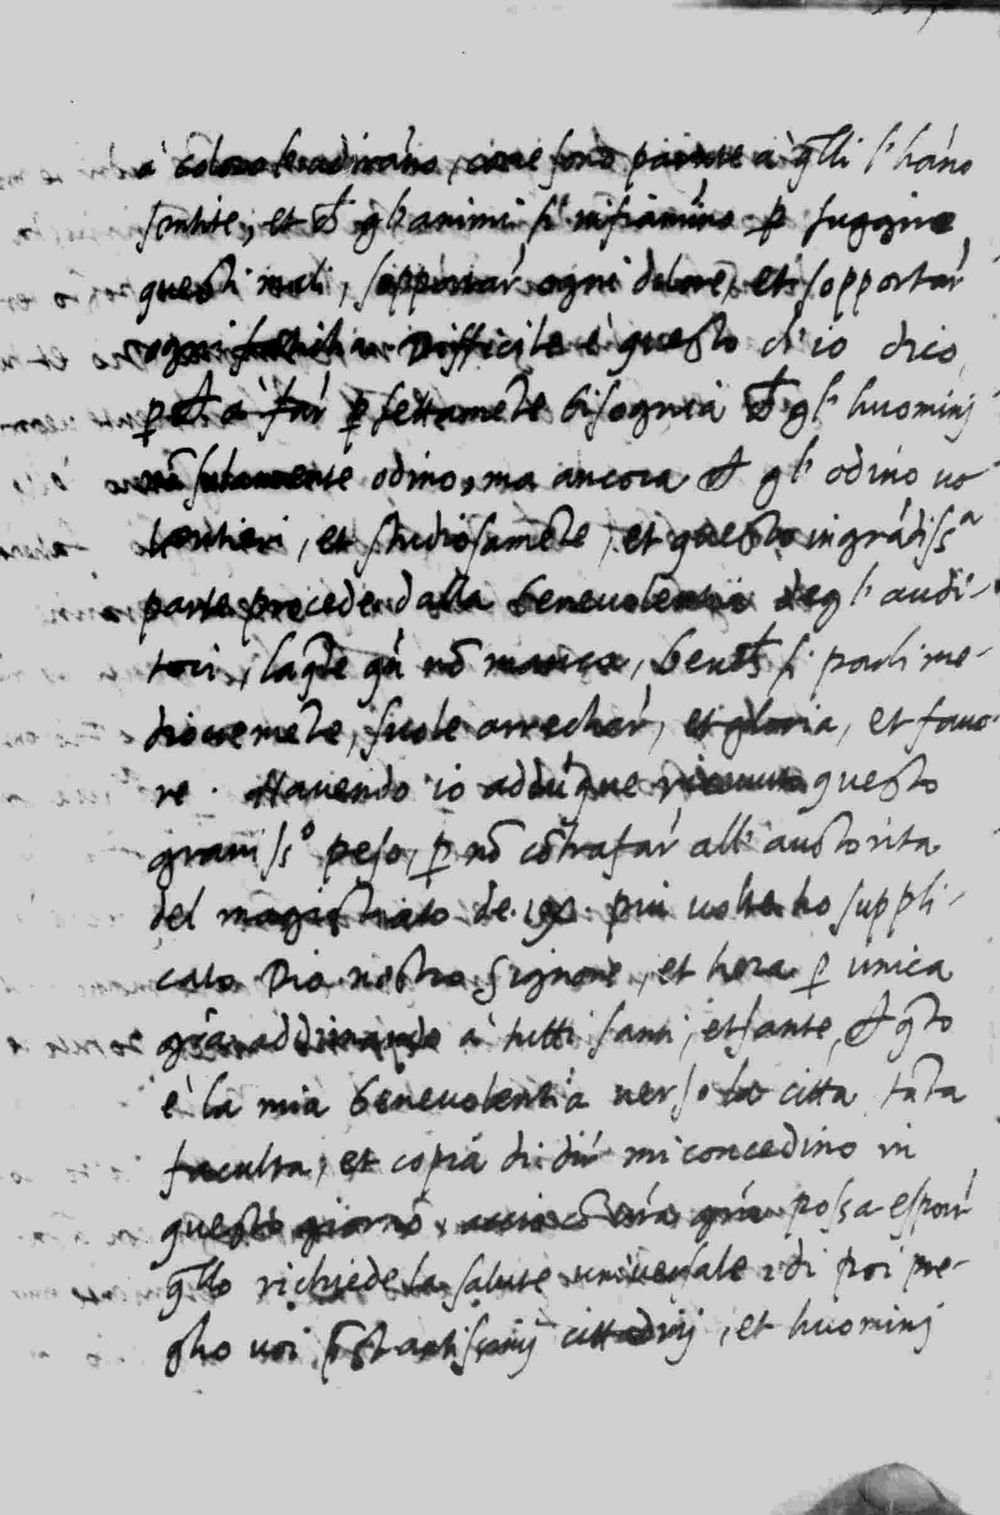 a coloro le adirāno, come sono parute a q̄lli l'hāno
sentite, et ch̄ gl'animi si infiamino p̄ fuggire
questi mali, sopportar ogni dolore, et sopportar
ogni Difficile è questo ch'io dico,
p ch̄ a far p̄fettamēte bisognia ch̄ gl'huominj
nō solamente odino, ma ancora ch̄ gl'odino uo
lentieri, et studiosamēte, et questo in grādissᵃ
parte procede dalla beneuolentia degl'audi-
tori, laq̄le qn̄ nō manca, bench̄ si parli me-
diocremēte, suole arrechar, et gloria, et fauo-
re. Hauendo io addūque questo
grauissᵒ peso, p̄ nō cōtrafar all'auttorita
del magistrato de. piu uolte ho suppli-
cato Dio nostro signore, et hora p̄ unica
gr̄a addimando a tutti santi, et sante, ch̄ q̄to
è la mia beneuolentia uerso la citta, tāta
faculta, et copia di dir mi concedino in
questo giorno, accio cō u̅r̅a gr̄a possa espor
q̄llo richiede la salute uniuersale, di poi pre-
gho uoi, p̄stantissimj cittadinj, et huominj